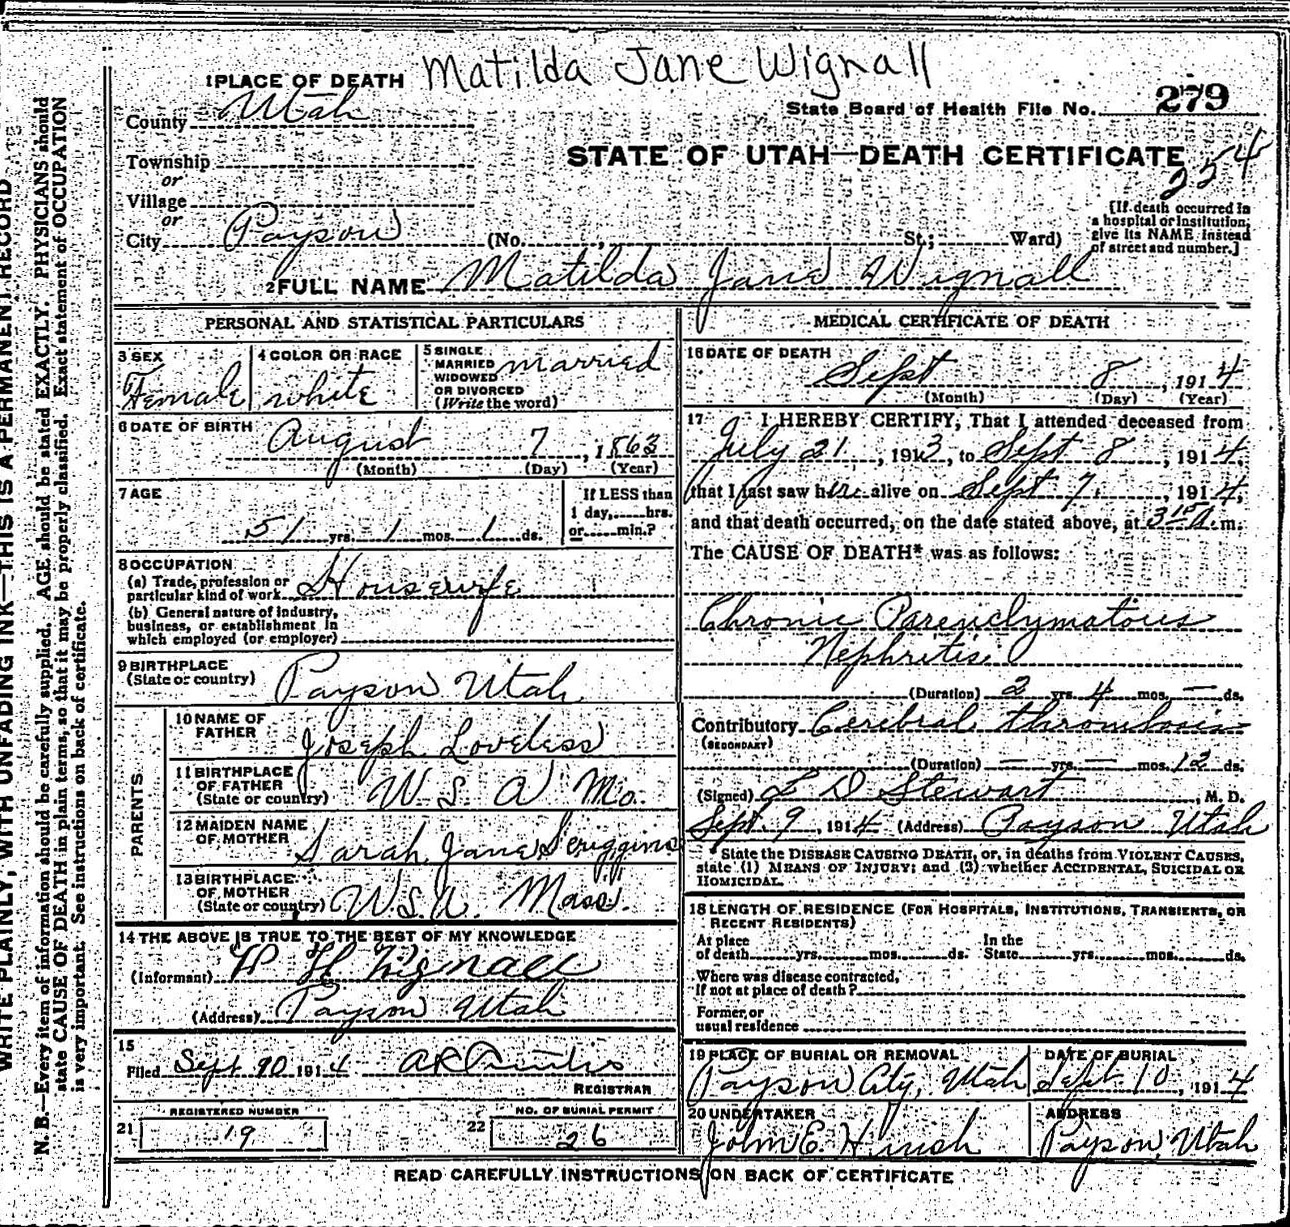 Matilda Jane Wignall
1 PLACE OF DEATH
County Utah
State Board of Health File No. 279
Township
or
STATE OF UTAH—DEATH CERTIFICATE
254
Village
or
City Payson (No. , St.; Ward)
[If death occurred in
a hospital or institution,
give its NAME instead
of street and number.]
2 FULL NAME Matilda Jane Wignall
PERSONAL AND STATISTICAL PARTICULARS
3 SEX
Female
4 COLOR OR RACE
white
5 SINGLE
MARRIED
WIDOWED
OR DIVORCED
(Write the word)
married
6 DATE OF BIRTH
August 7, 1863
(Month) (Day) (Year)
7 AGE
51 yrs. 1 mos. 1 ds.
If LESS than
1 day, hrs.
or min.?
8 OCCUPATION
(a) Trade, profession or
particular kind of work Housewife
(b) General nature of industry,
business, or establishment in
which employed (or employer)
9 BIRTHPLACE
(State or country) Payson Utah
PARENTS
10 NAME OF
FATHER Joseph Loveless
11 BIRTHPLACE
OF FATHER
(State or country) U.S.A Mo.
12 MAIDEN NAME
OF MOTHER Sarah Jane Scriggins
13 BIRTHPLACE
OF MOTHER
(State or country) U.S.A. Mass.
14 THE ABOVE IS TRUE TO THE BEST OF MY KNOWLEDGE
(Informant) W H Wignall
(Address) Payson Utah
15
Filed Sept 10 1914
REGISTRAR
REGISTERED NUMBER
21 19
NO. OF BURIAL PERMIT
22 26
MEDICAL CERTIFICATE OF DEATH
16 DATE OF DEATH
Sept 8, 1914
(Month) (Day) (Year)
17 I HEREBY CERTIFY, That I attended deceased from
July 21, 1913, to Sept 8, 1914,
that I last saw her alive on Sept 7, 1914,
and that death occurred, on the date stated above, at 3 15 A. m.
The CAUSE OF DEATH* was as follows:
Chronic Parenchymatous
Nephritis
(Duration) 2 yrs. 4 mos. — ds.
Contributory Cerebral thrombosis
(SECONDARY)
(Duration) — yrs. — mos. 12 ds.
(Signed) L D Stewart, M. D.
Sept. 9, 1914 (Address) Payson Utah
* State the DISEASE CAUSING DEATH, or, in deaths from VIOLENT CAUSES,
state (1) MEANS OF INJURY; and (3) whether ACCIDENTAL, SUICIDAL OR
HOMICIDAL.
18 LENGTH OF RESIDENCE (FOR HOSPITALS, INSTITUTIONS, TRANSIENTS, OR
RECENT RESIDENTS)
At place
of death yrs. mos. ds.
In the
State yrs. mos. ds.
Where was disease contracted,
If not at place of death?
Former or
usual residence
19 PLACE OF BURIAL OR REMOVAL
Payson City, Utah
DATE OF BURIAL
Sept. 10, 1914
20 UNDERTAKER
John E. Huish
ADDRESS
Payson, Utah
READ CAREFULLY INSTRUCTIONS ON BACK OF CERTIFICATE
WRITE PLAINLY, WITH UNFADING INK—THIS IS A PERMANENT RECORD
N. B.—Every item of information should be carefully supplied. AGE should be stated EXACTLY. PHYSICIANS should
state CAUSE OF DEATH in plain terms, so that it may be properly classified. Exact statement of OCCUPATION
is very important. See instructions on back of certificate.